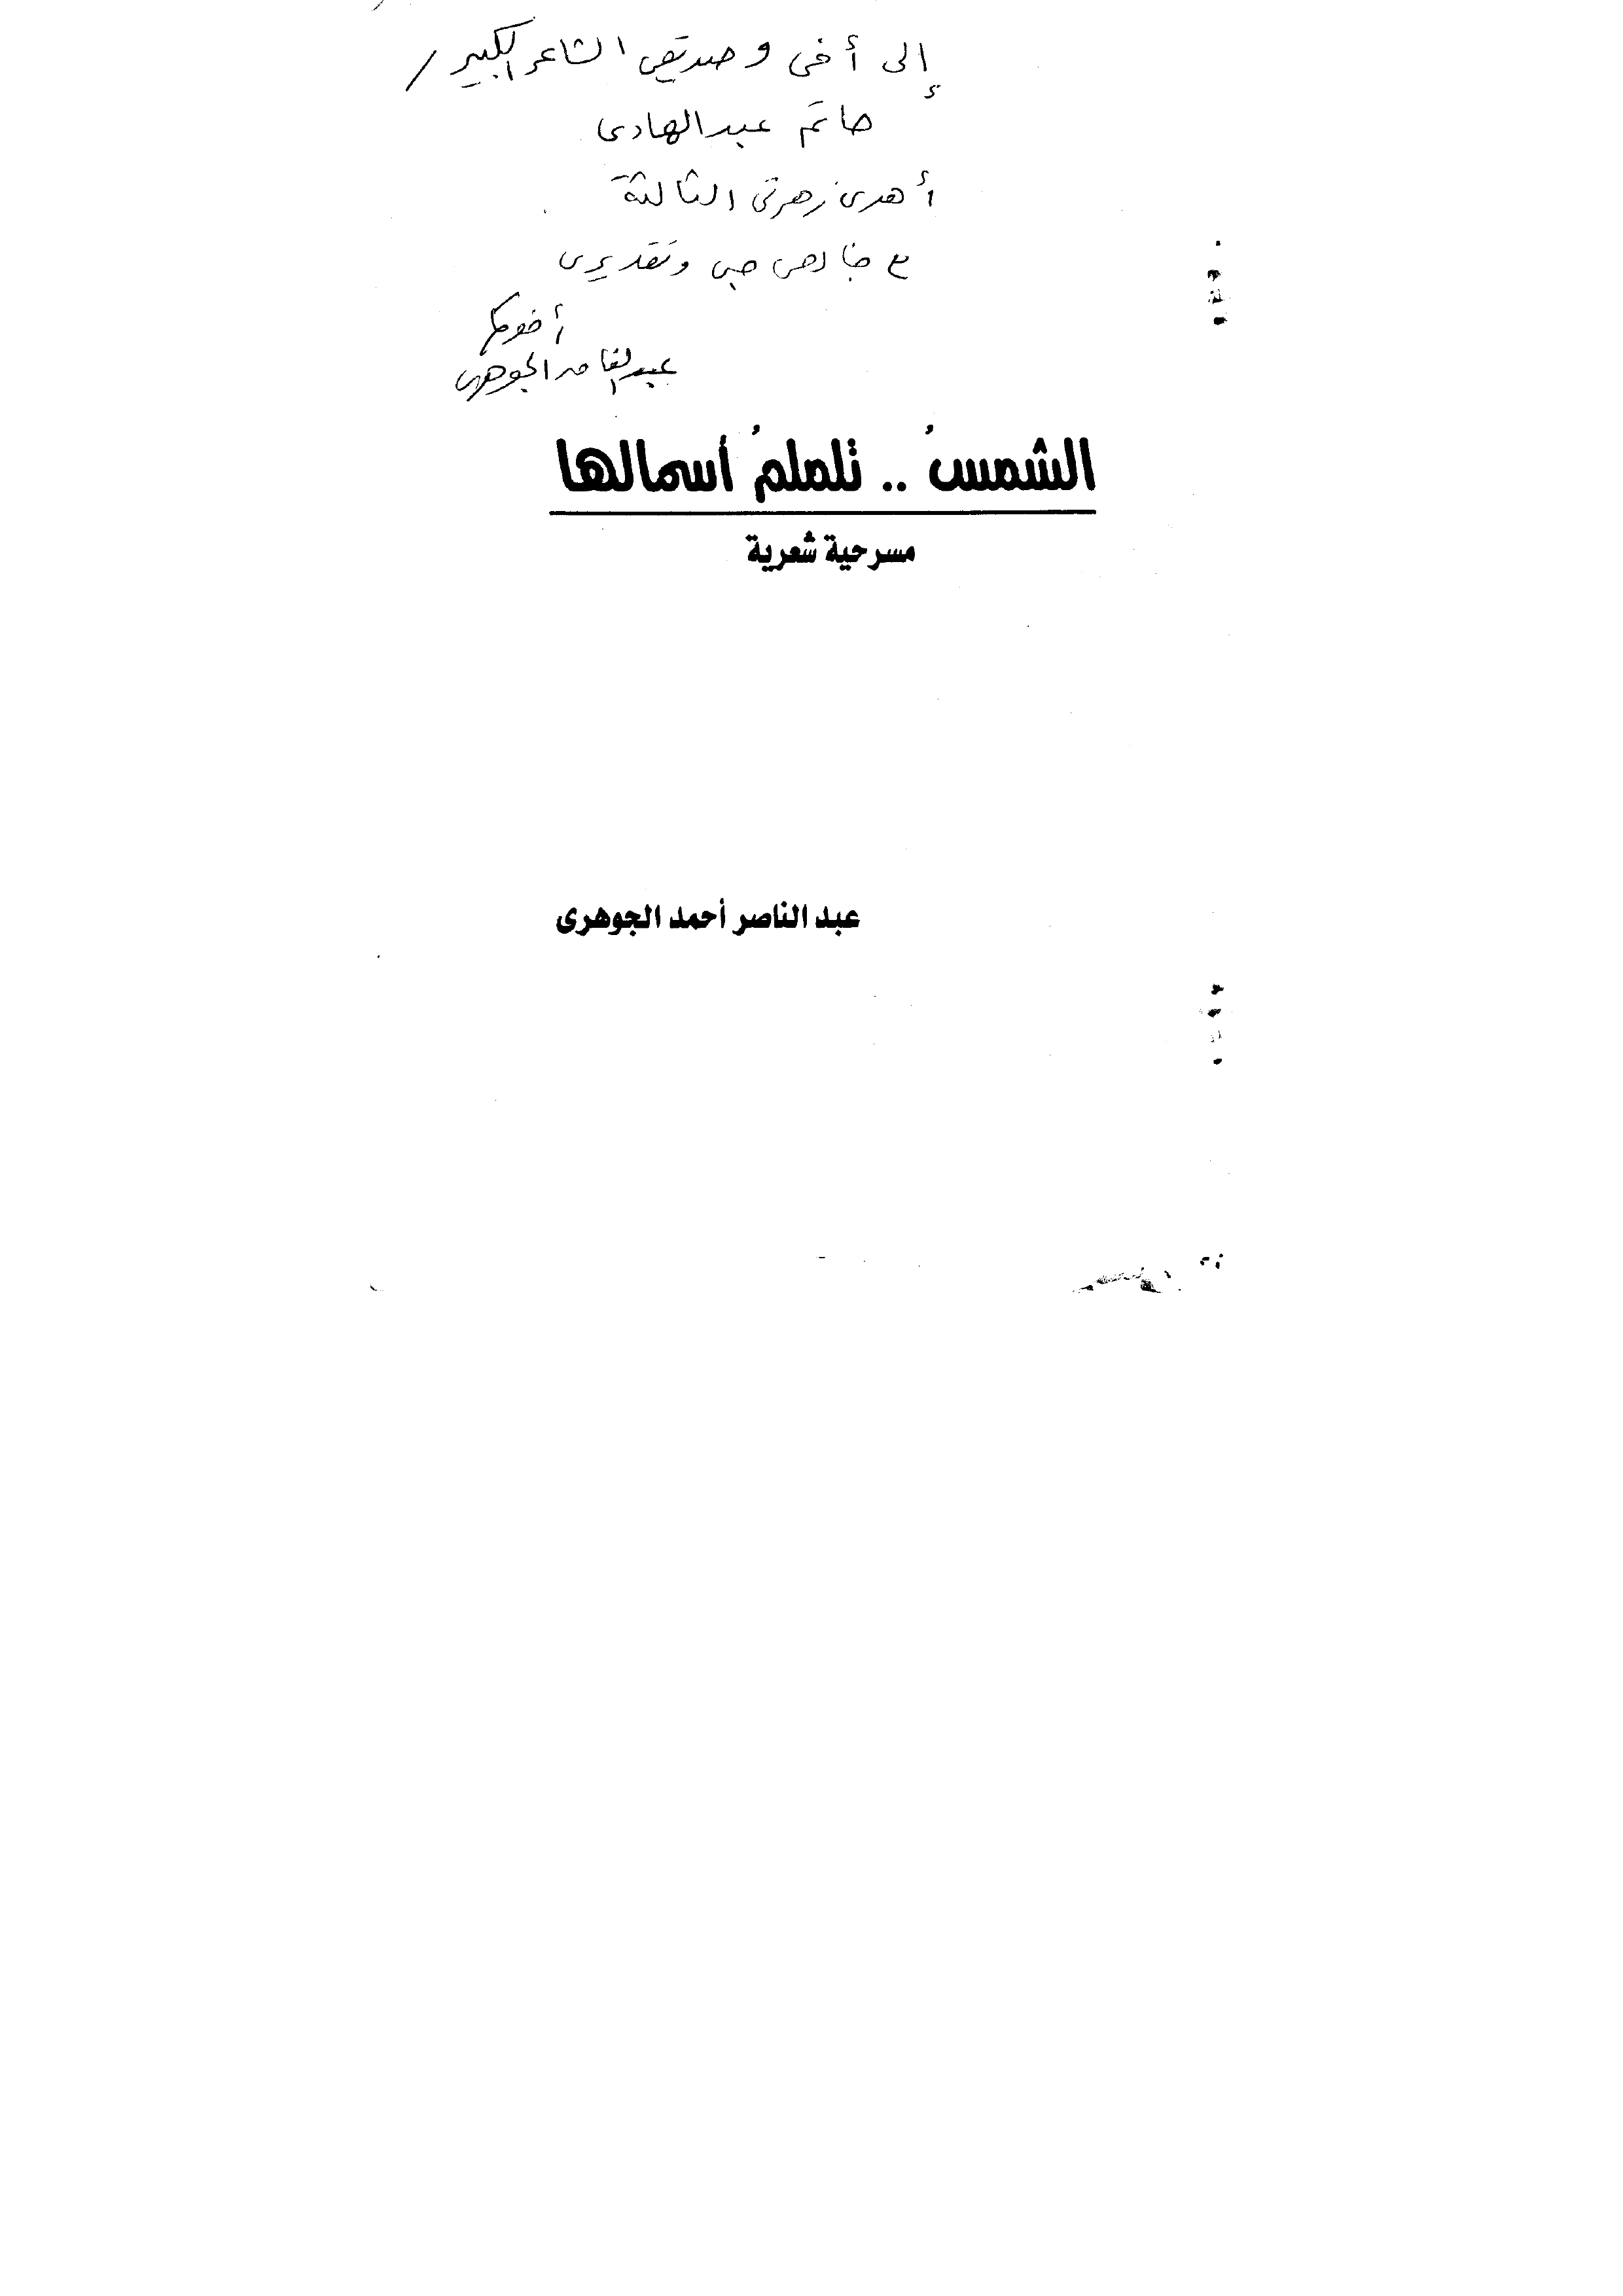 إلى أخى وصديقى الشاعر الكبير /
حاتم عبدالهادى
أهدى زهرتى الثالثة
مع خالص حبى وتقديرى
أخوكم
عبدالناصر الجوهرى
الشمسُ .. تلملمُ أسمالها
مسرحية شعرية
عبد الناصر أحمد الجوهرى